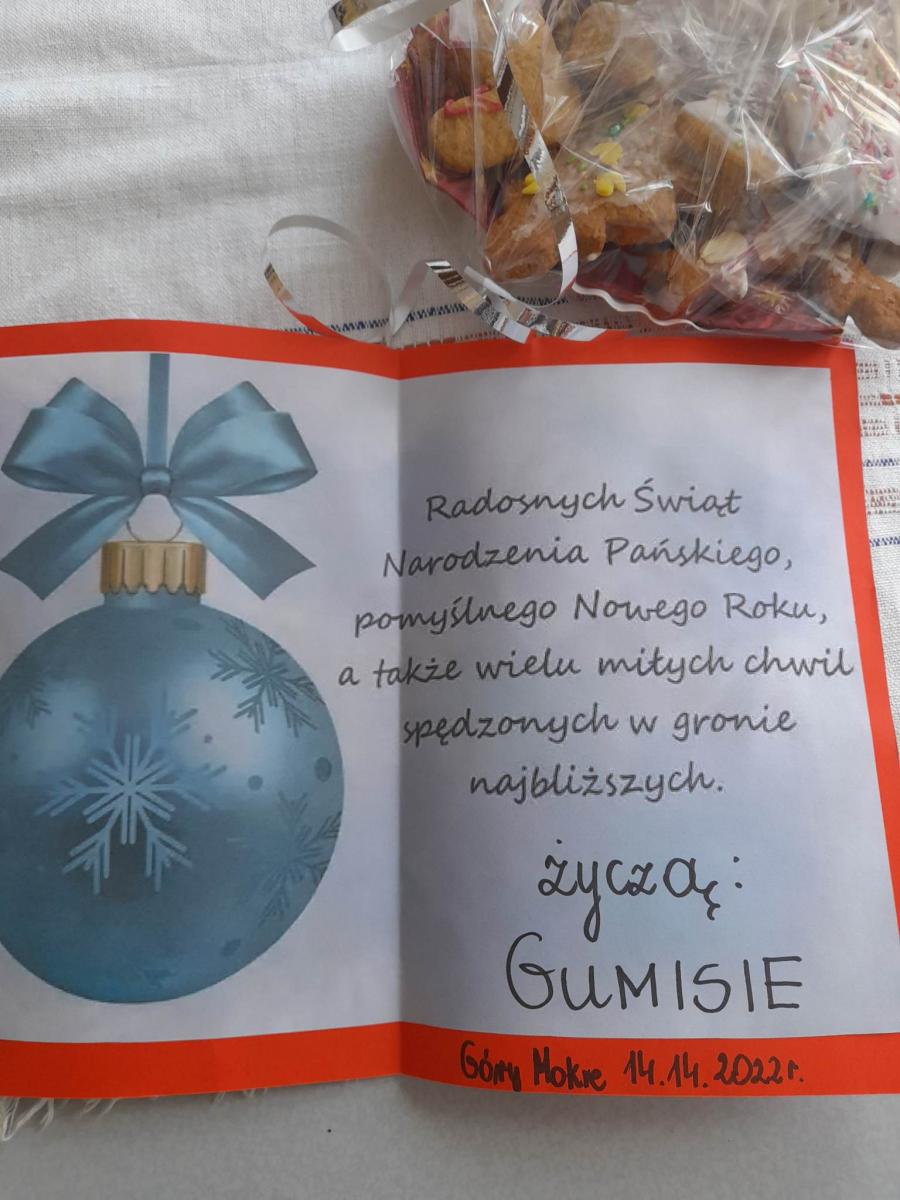 Radosnych Świąt
Narodzenia Pańskiego,
pomyślnego Nowego Roku,
a także wielu miłych chwil
spędzonych w gronie
najbliższych.
życzą:
GUMISIE
Góry Mokre 14.14.2022r.